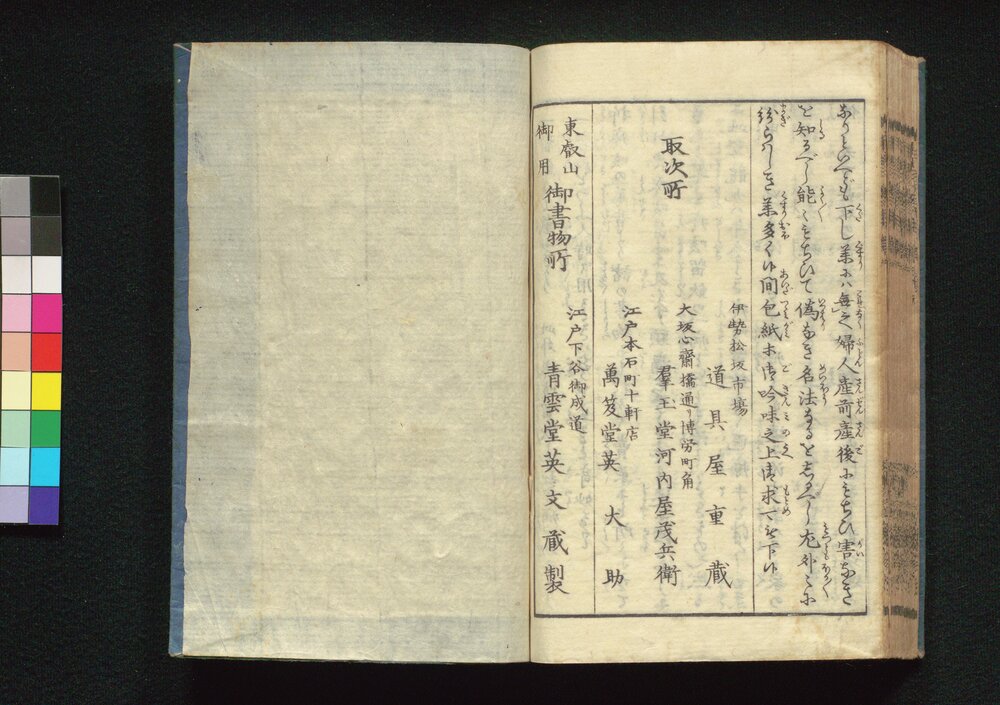 なりといへども下し薬にハ無之婦人産前産後にもちひ害なき
を知るべし能〻もちひて偽なき名法なるを志るべし尤外ニに
紛らハしき薬多く候間包紙等御吟味之上御求可被下候
取次所
伊勢松坂市場
道具屋重蔵
大坂心齋橋通り博労町角
羣玉堂河内屋茂兵衛
江戸本石町十軒店
萬笈堂英大助
東叡山
御用
御書物所
江戸下谷御成道
青雲堂英文蔵製